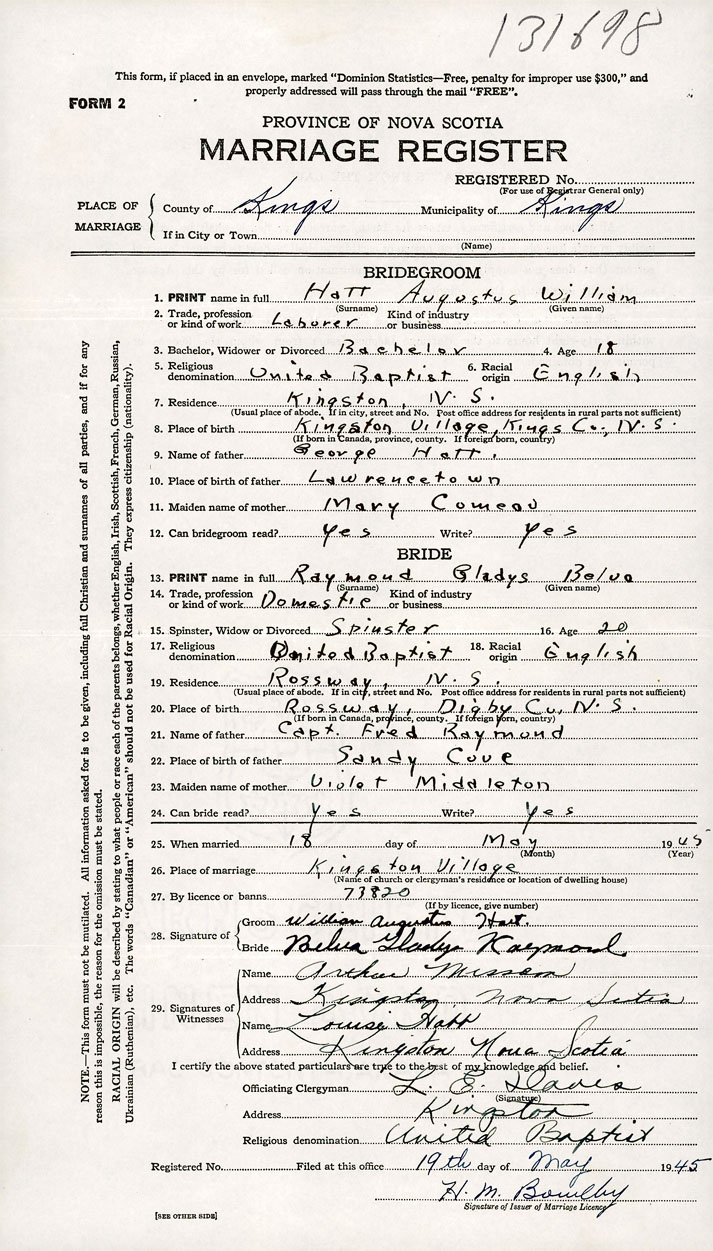 131698
This form, if placed in an envelope, marked “Dominion Statistics—Free, penalty for improper use $300,” and
properly addressed will pass through the mail “FREE”.
FORM 2
PROVINCE OF NOVA SCOTIA
MARRIAGE REGISTER
REGISTERED No.
(For use of Registrar General only)
PLACE OF MARRIAGE
County of Kings Municipality of Kings
If in City or Town
(Name)
BRIDEGROOM
1. PRINT name in full Hatt Augustus William
(Surname) (Given name)
2. Trade, profession or kind of work Laborer Kind of industry or business
3. Bachelor, Widower or Divorced Bachelor 4. Age 18
5. Religious denomination United Baptist 6. Racial origin English
7. Residence Kingston, N.S.
(Usual place of abode. If in city, street and No. Post office address for residents in rural parts not sufficient)
8. Place of birth Kingston Village, Kings Co., N.S.
(If born in Canada, province, county. If foreign born, country)
9. Name of father George Hatt.
10. Place of birth of father Lawrencetown
11. Maiden name of mother Mary Comeau
12. Can bridegroom read? Yes Write? Yes
BRIDE
13. PRINT name in full Raymond Gladys Belva
(Surname) (Given name)
14. Trade, profession or kind of work Domestic Kind of industry or business
15. Spinster, Widow or Divorced Spinster 16. Age 20
17. Religious denomination United Baptist 18. Racial origin English
19. Residence Rossway, N.S.
(Usual place of abode. If in city, street and No. Post office address for residents in rural parts not sufficient)
20. Place of birth Rossway, Digby Co., N.S.
(If born in Canada, province, county. If foreign born, country)
21. Name of father Capt. Fred Raymond
22. Place of birth of father Sandy Cove
23. Maiden name of mother Violet Middleton
24. Can bride read? Yes Write? Yes
25. When married 18 day of May 1945
(Month) (Year)
26. Place of marriage Kingston Village
(Name of church or clergyman's residence or location of dwelling house)
27. By licence or banns 73820
(If by licence, give number)
28. Signature of
Groom William Augustus Hatt.
Bride Belva Gladys Raymond.
29. Signatures of Witnesses
Name Arthur
Address Kingston, Nova Scotia
Name Louise Hatt
Address Kingston Nova Scotia
I certify the above stated particulars are true to the best of my knowledge and belief.
Officiating Clergyman L. E. Davis
(Signature)
Address Kingston
Religious denomination United Baptist
Registered No. Filed at this office 19th day of May 1945
H. M. Bowlby
Signature of Issuer of Marriage Licence
[SEE OTHER SIDE]
NOTE.—This form must not be mutilated. All information asked for is to be given, including full Christian and surnames of all parties, and if for any
reason this is impossible, the reason for the omission must be stated.
RACIAL ORIGIN will be described by stating to what people or race each of the parents belongs, whether English, Irish, Scottish, French, German, Russian,
Ukrainian (Ruthenian), etc. The words “Canadian” or “American” should not be used for Racial Origin. They express citizenship (nationality).